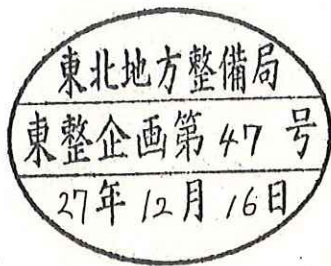 東北地方整備局
東整企画第47号
27年12月16日